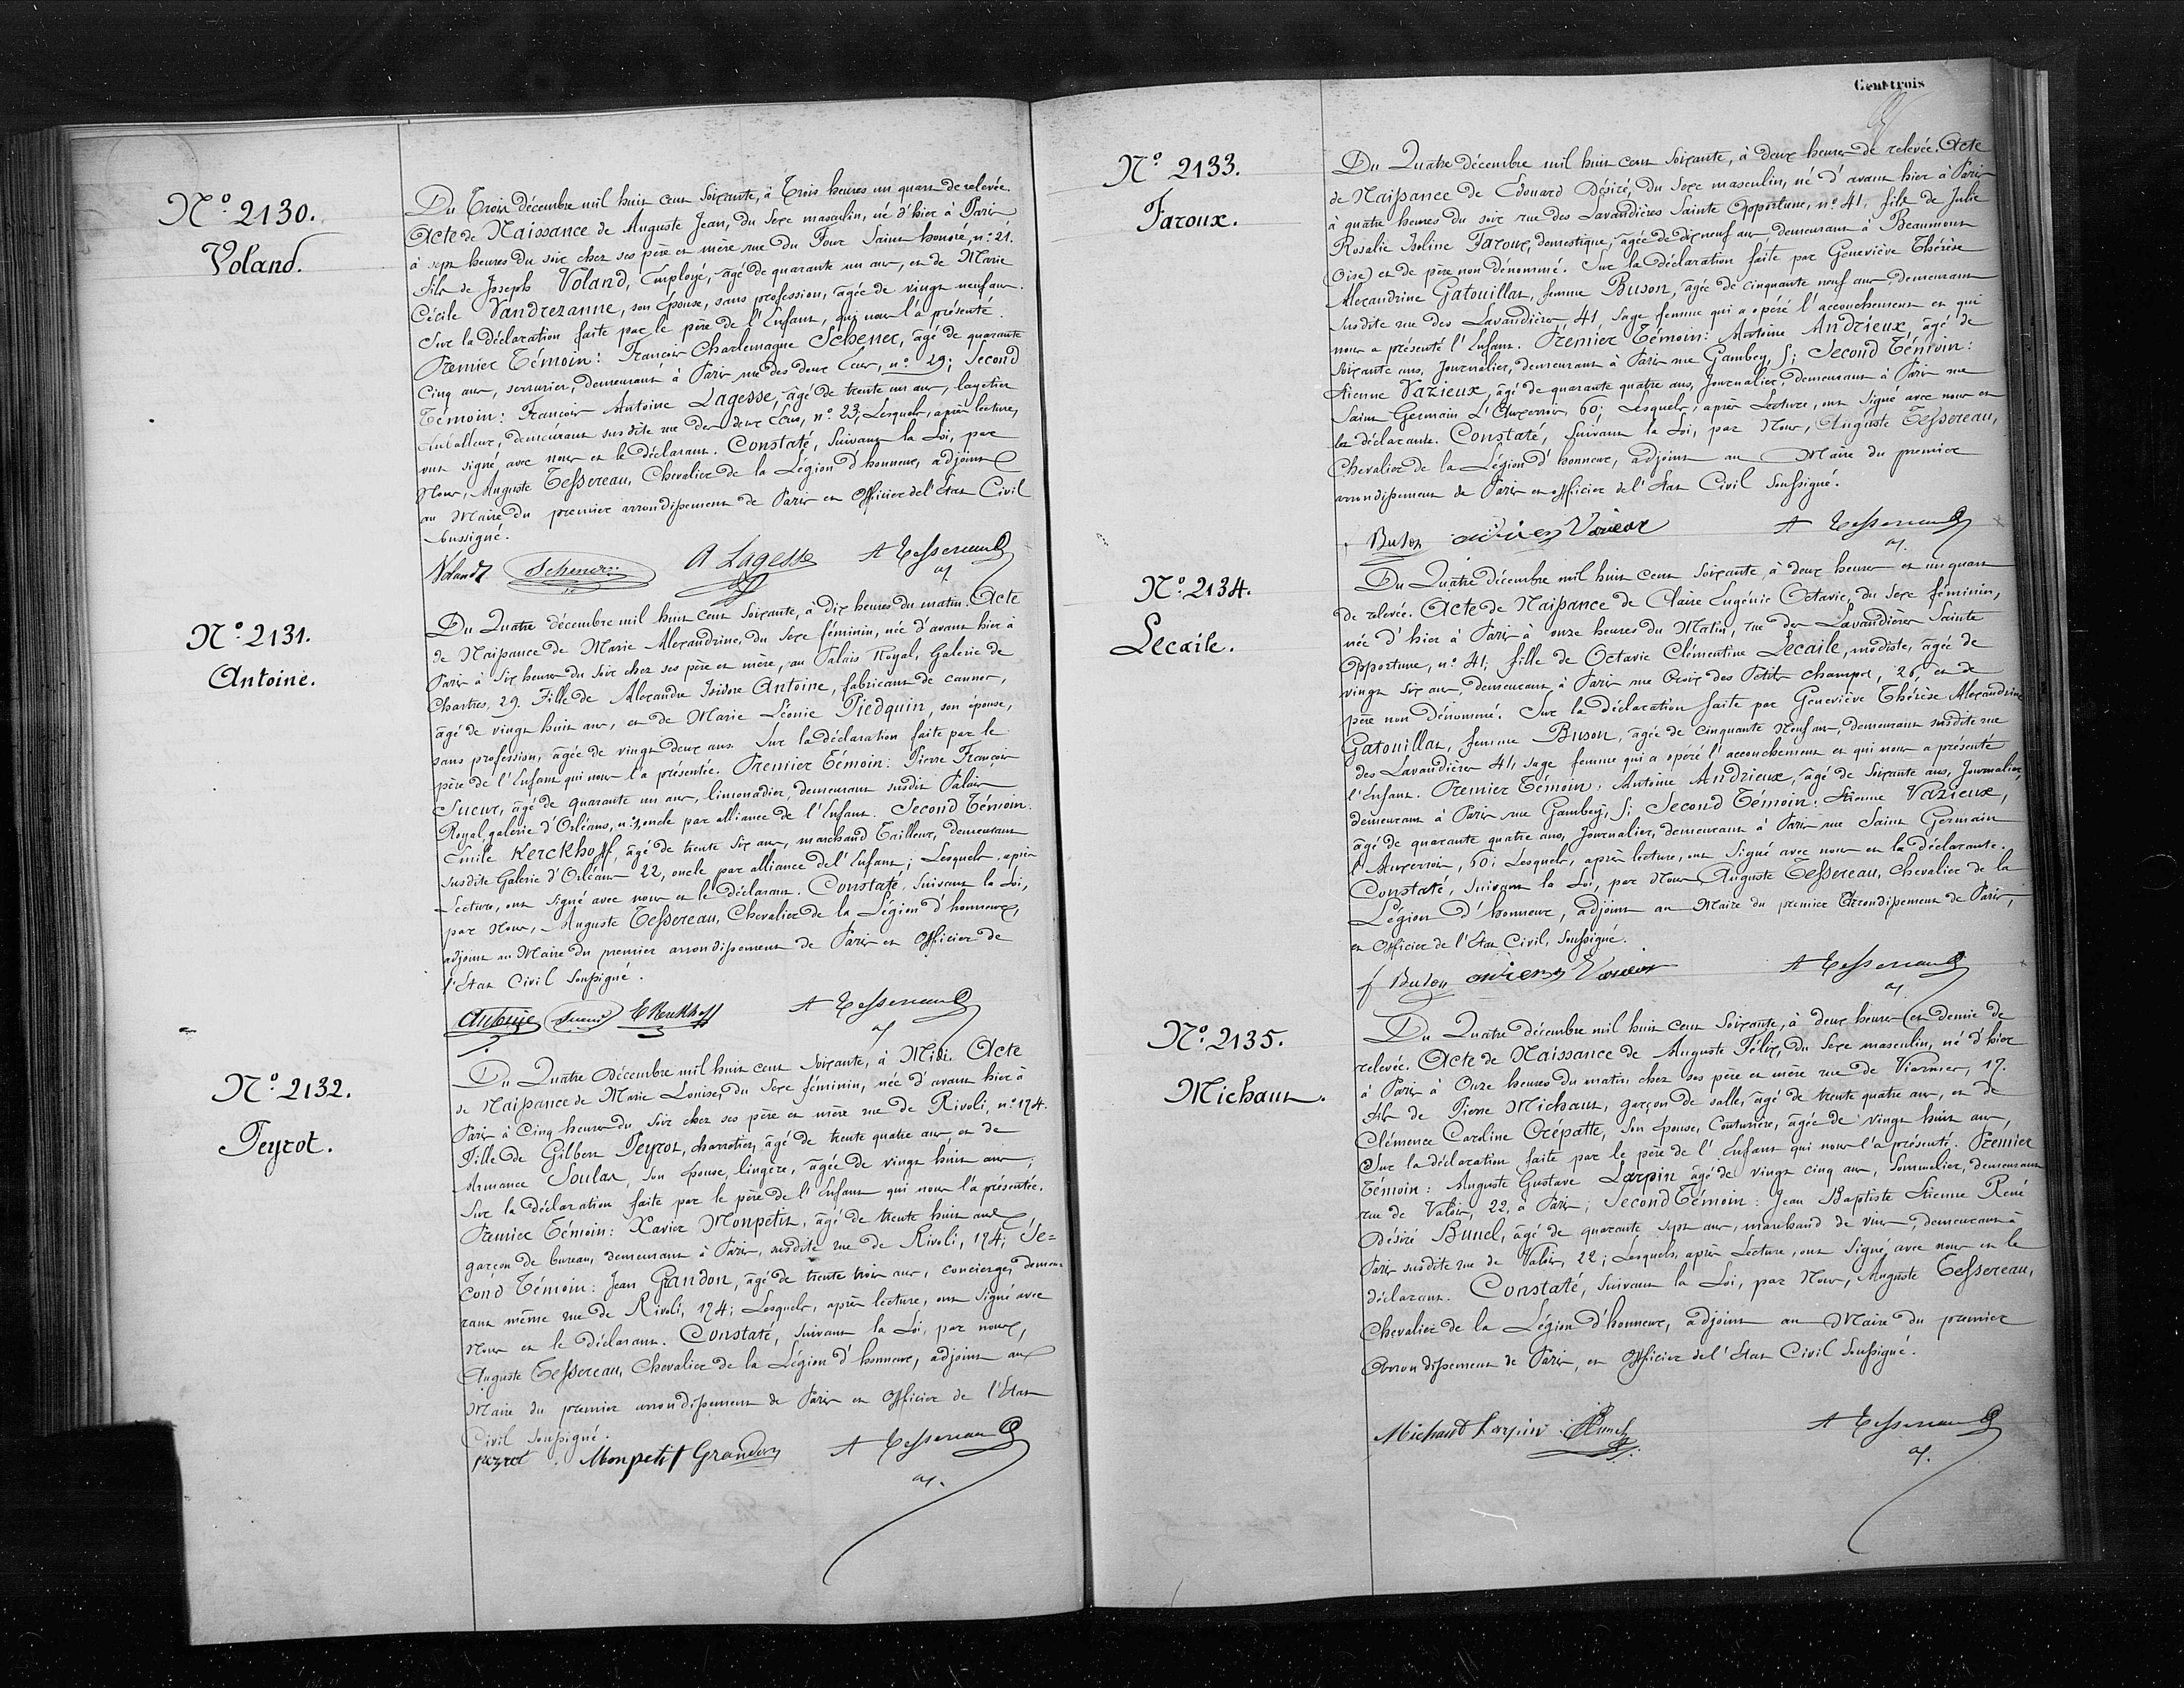 Nº 2130.
Voland.
Du Trois décembre mil huit cent Soixante, à Trois heures un quart de relevée.
Acte de Naissance de Auguste Jean, du Sexe masculin, né d'hier à Paris
à sept heures du soir chez ses père et mère rue du Four Saint honoré, nº 21.
fils de Joseph Voland, Employé, âgé de quarante un ans, et de Marie
Cécile Vandrezanne, son Épouse, sans profession, âgée de vingt neuf ans.
Sur la déclaration faite par le père de l'Enfant, qui nous l'a présenté.
Premier Témoin: François Charlemagne Schener, âgé de quarante
Cinq ans, serrurier, demeurant à Paris rue des deux Écus, nº 29; Second
Témoin: François Antoine Lagesse, âgé de trente un ans, layetier
Emballeur, demeurant susdite rue des deux Écus, nº 23; Lesquels, après lecture,
ont signé avec nous et le déclarant. Constaté, Suivant la Loi, par
Nous, Auguste Tessereau, Chevalier de la Légion d'honneur, adjoint
au Maire du premier arrondissement de Paris et Officier de l'État Civil
soussigné.
Voland Schener A Lagesse A Tessereau
Nº 2131.
Antoine.
Du Quatre décembre mil huit cent Soixante, à dix heures du matin. Acte
de Naissance de Marie Alexandrine, du Sexe féminin, née d'avant hier à
Paris à Six heures du Soir chez ses père et mère, au Palais Royal, Galerie de
Chartres, 29. Fille de Alexandre Isidore Antoine, fabricant de cannes,
âgé de vingt huit ans, et de Marie Léonie Piedquin, son épouse,
sans profession, âgée de vingt deux ans. Sur la déclaration faite par le
père de l'Enfant qui nous l'a présentée. Premier Témoin: Pierre François
Sueur, âgé de quarante un ans, limonadier, demeurant susdit Palais
Royal galerie d'Orléans, nº 1, oncle par alliance de l'Enfant. Second Témoin:
Emile Kerckhoff, âgé de trente Six ans, marchand Tailleur, demeurant
susdite Galerie d'Orléans 22, oncle par alliance de l'Enfant; Lesquels, après
Lecture, ont signé avec nous et le déclarant. Constaté, Suivant la Loi,
par Nous, Auguste Tessereau, Chevalier de la Légion d'honneur,
adjoint au Maire du premier arrondissement de Paris et Officier de
l'État Civil soussigné.
Antoine Sueur E Kerckhoff A Tessereau
Nº 2132.
Peyrot.
Du Quatre Décembre mil huit cent Soixante, à Midi. Acte
de Naissance de Marie Louise, du Sexe féminin, née d'avant hier à
Paris à Cinq heures du Soir chez ses père et mère rue de Rivoli, nº 174.
Fille de Gilbert Peyrot, charretier, âgé de trente quatre ans, et de
Armance Soulat, Son Épouse, lingère, âgée de vingt huit ans;
Sur la déclaration faite par le père de l'Enfant qui nous l'a présentée.
Premier Témoin: Xavier Monpetit, âgé de trente huit ans
garçon de bureau, demeurant à Paris, susdite rue de Rivoli, 174; Se=
cond Témoin: Jean Grandon, âgé de trente trois ans, concierge, demeu
rant même rue de Rivoli, 174; Lesquels, après lecture, ont Signé avec
Nous et le déclarant. Constaté, Suivant la Loi, par nous,
Auguste Tessereau, Chevalier de la Légion d'honneur, adjoint au
Maire du premier arrondissement de Paris et Officier de l'État
Civil soussigné.
peyrot Monpetit Grandon A Tessereau
Cent trois
Nº 2133.
Faroux.
Du Quatre décembre mil huit cent Soixante, à deux heures de relevée. Acte
de Naissance de Edouard Désiré, du Sexe masculin, né d'avant hier à Paris
à quatre heures du soir rue des Lavandières Sainte Opportune, nº 41. fils de Julie
Rosalie Isoline Faroux, domestique, âgée de dix neuf ans demeurant à Beaumont
(Oise) et de père non dénommé. Sur la déclaration faite par Geneviève Thérèse
Alexandrine Gatouillat, femme Buson, âgée de cinquante neuf ans, demeurant
susdite rue des Lavandières 41, Sage femme qui a opéré l'accouchement et qui
nous a présenté l'Enfant. Premier Témoin: Antoine Andrieux, âgé de
Soixante ans, Journalier, demeurant à Paris rue Gambey, 5; Second Témoin:
Étienne Vazieux, âgé de quarante quatre ans, Journalier, demeurant à Paris rue
Saint Germain L'Auxerrois, 60; Lesquels, après Lecture, ont Signé avec nous et
la déclarante. Constaté, Suivant la Loi, par Nous, Auguste Tessereau,
Chevalier de la Légion d'honneur, adjoint au Maire du premier
arrondissement de Paris et officier de l'État Civil soussigné.
Buson andrieux Vazieux A Tessereau
Nº 2134.
Lecaile.
Du Quatre décembre mil huit cent Soixante, à deux heures et un quart
de relevée. Acte de Naissance de Claire Eugénie Octavie, du Sexe féminin,
née d'hier à Paris à onze heures du Matin, rue des Lavandières Sainte
Opportune, nº 41, fille de Octavie Clémentine Lecaile, modiste, âgée de
vingt Six ans, demeurant à Paris rue Croix des Petits champs, 26, et de
père non dénommé. Sur la déclaration faite par Geneviève Thérèse Alexandrine
Gatouillat, femme Buson, âgée de Cinquante Neuf ans, demeurant susdite rue
des Lavandières 41, sage femme qui a opéré l'accouchement et qui nous a présenté
l'Enfant. Premier Témoin: Antoine Andrieux, âgé de Soixante ans, Journalier,
demeurant à Paris rue Gambey, 5; Second Témoin: Étienne Vazieux,
âgé de quarante quatre ans, Journalier, demeurant à Paris rue Saint Germain
l'Auxerrois, 60; Lesquels, après lecture, ont Signé avec nous et la déclarante.
Constaté, Suivant la Loi, par Nous, Auguste Tessereau, Chevalier de la
Légion d'honneur, adjoint au Maire du premier Arrondissement de Paris,
et Officier de l'État Civil, soussigné.
f Buson andrieux Vazieux A Tessereau
Nº 2135.
Michaut.
Du Quatre décembre mil huit cent Soixante, à deux heures et demie de
relevée. Acte de Naissance de Auguste Félix, du Sexe masculin, né d'hier
à Paris à Onze heures du matin, chez ses père et mère rue de Viarmes, 17.
fils de Pierre Michaut, garçon de salle, âgé de trente quatre ans, et de
Clémence Caroline Crépatte, Son épouse, Couturière, âgée de vingt huit ans,
Sur la déclaration faite par le père de l'Enfant qui nous l'a présenté. Premier
Témoin: Auguste Gustave Larpin âgé de vingt cinq ans, Sommelier, demeurant
rue de Valois, 22, à Paris; Second Témoin: Jean Baptiste Étienne René
Désiré Bunel, âgé de quarante sept ans, marchand de vins, demeurant à
Paris susdite rue de Valois, 22; Lesquels, après Lecture, ont Signé avec nous et le
déclarant. Constaté, Suivant la Loi, par Nous, Auguste Tessereau,
Chevalier de la Légion d'honneur, adjoint au Maire du premier
Arrondissement de Paris, et Officier de l'État Civil soussigné.
Michaut Larpin Bunel A Tessereau